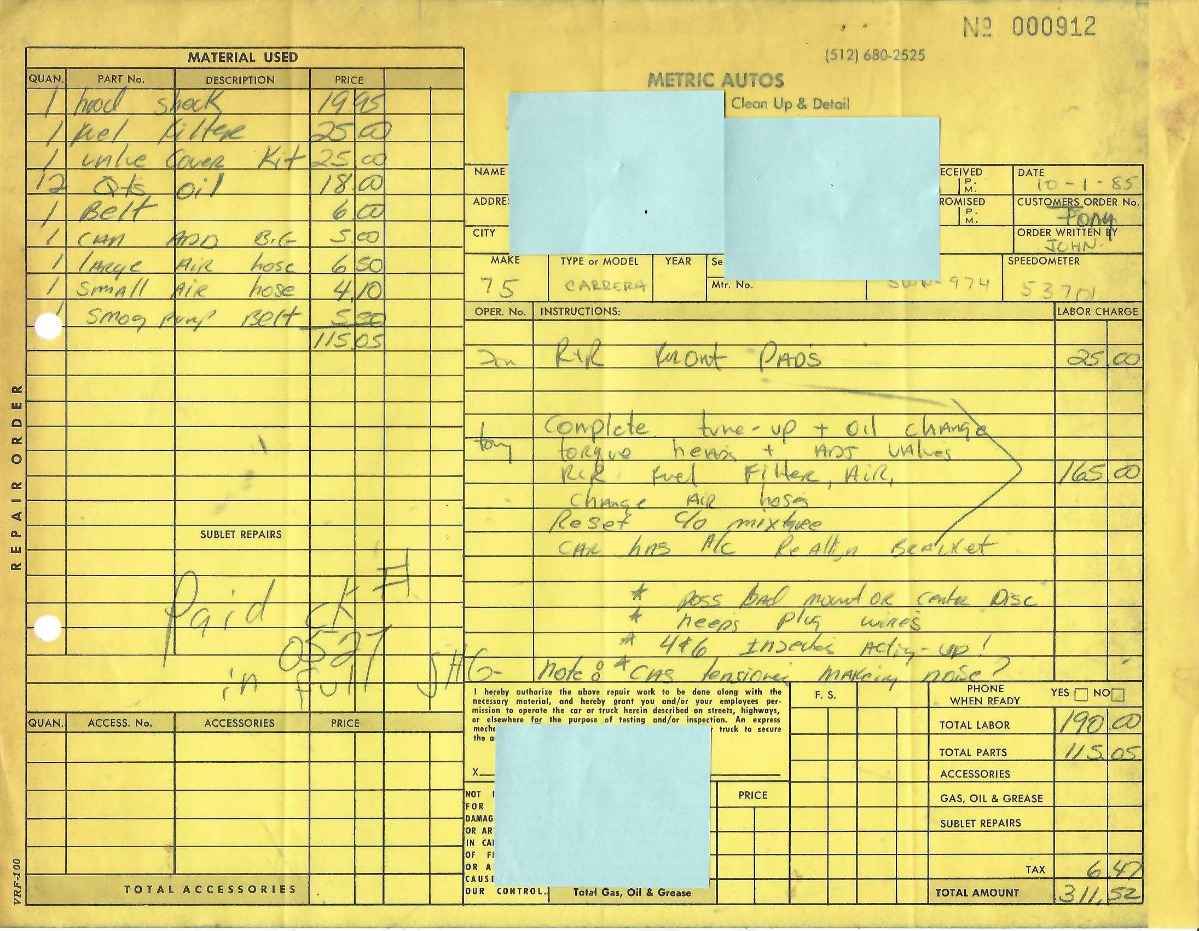 Nº 000912
(512) 680-2525
METRIC AUTOS
Clean Up & Detail
REPAIR ORDER
VRF-100
MATERIAL USED
QUAN. PART No. DESCRIPTION PRICE
1 hood shock 19 95
1 fuel filter 25.00
1 valve cover kit 25.00
12 Qts oil 18.00
1 Belt 6.00
1 CAN ADD B.G 5.00
1 large AIR hose 6 50
1 Small AIR hose 4.10
1 Smog pump Belt 5.50
115.05
SUBLET REPAIRS
Paid ck #
0527
in full
QUAN. ACCESS. No. ACCESSORIES PRICE
TOTAL ACCESSORIES
NAME
ECEIVED
P.
M.
DATE
10-1-85
ADDRE
ROMISED
P.
M.
CUSTOMERS ORDER No.
TONY
CITY
ORDER WRITTEN BY
JOHN
MAKE TYPE or MODEL YEAR Se SPEEDOMETER
75 CARRERA Mtr. No. 974 53701
OPER. No. INSTRUCTIONS: LABOR CHARGE
R&R front PADS 25.00
Complete tune-up + oil change
tony torque heads + ADJ valves
R&R fuel Filter, AiR, 165.00
Change AIR hoses
Reset c/o mixture
CAR has A/C Bracket
* poss bad mount or center Disc
* needs plug wires
* 4&6 up!
note: * tensioner making noise?
I hereby authorize the above repair work to be done along with the
necessary material, and hereby grant you and/or your employees per-
mission to operate the car or truck herein described on streets, highways,
or elsewhere for the purpose of testing and/or inspection. An express
mecha r truck to secure
the a
X
NOT
FOR
DAMAG
OR AR
IN CA
OF FI
OR A
CAUSE
OUR CONTROL.
PRICE
Total Gas, Oil & Grease
F. S.
PHONE
WHEN READY YES NO
TOTAL LABOR 190.00
TOTAL PARTS 115.05
ACCESSORIES
GAS, OIL & GREASE
SUBLET REPAIRS
TAX 6.47
TOTAL AMOUNT 311.52